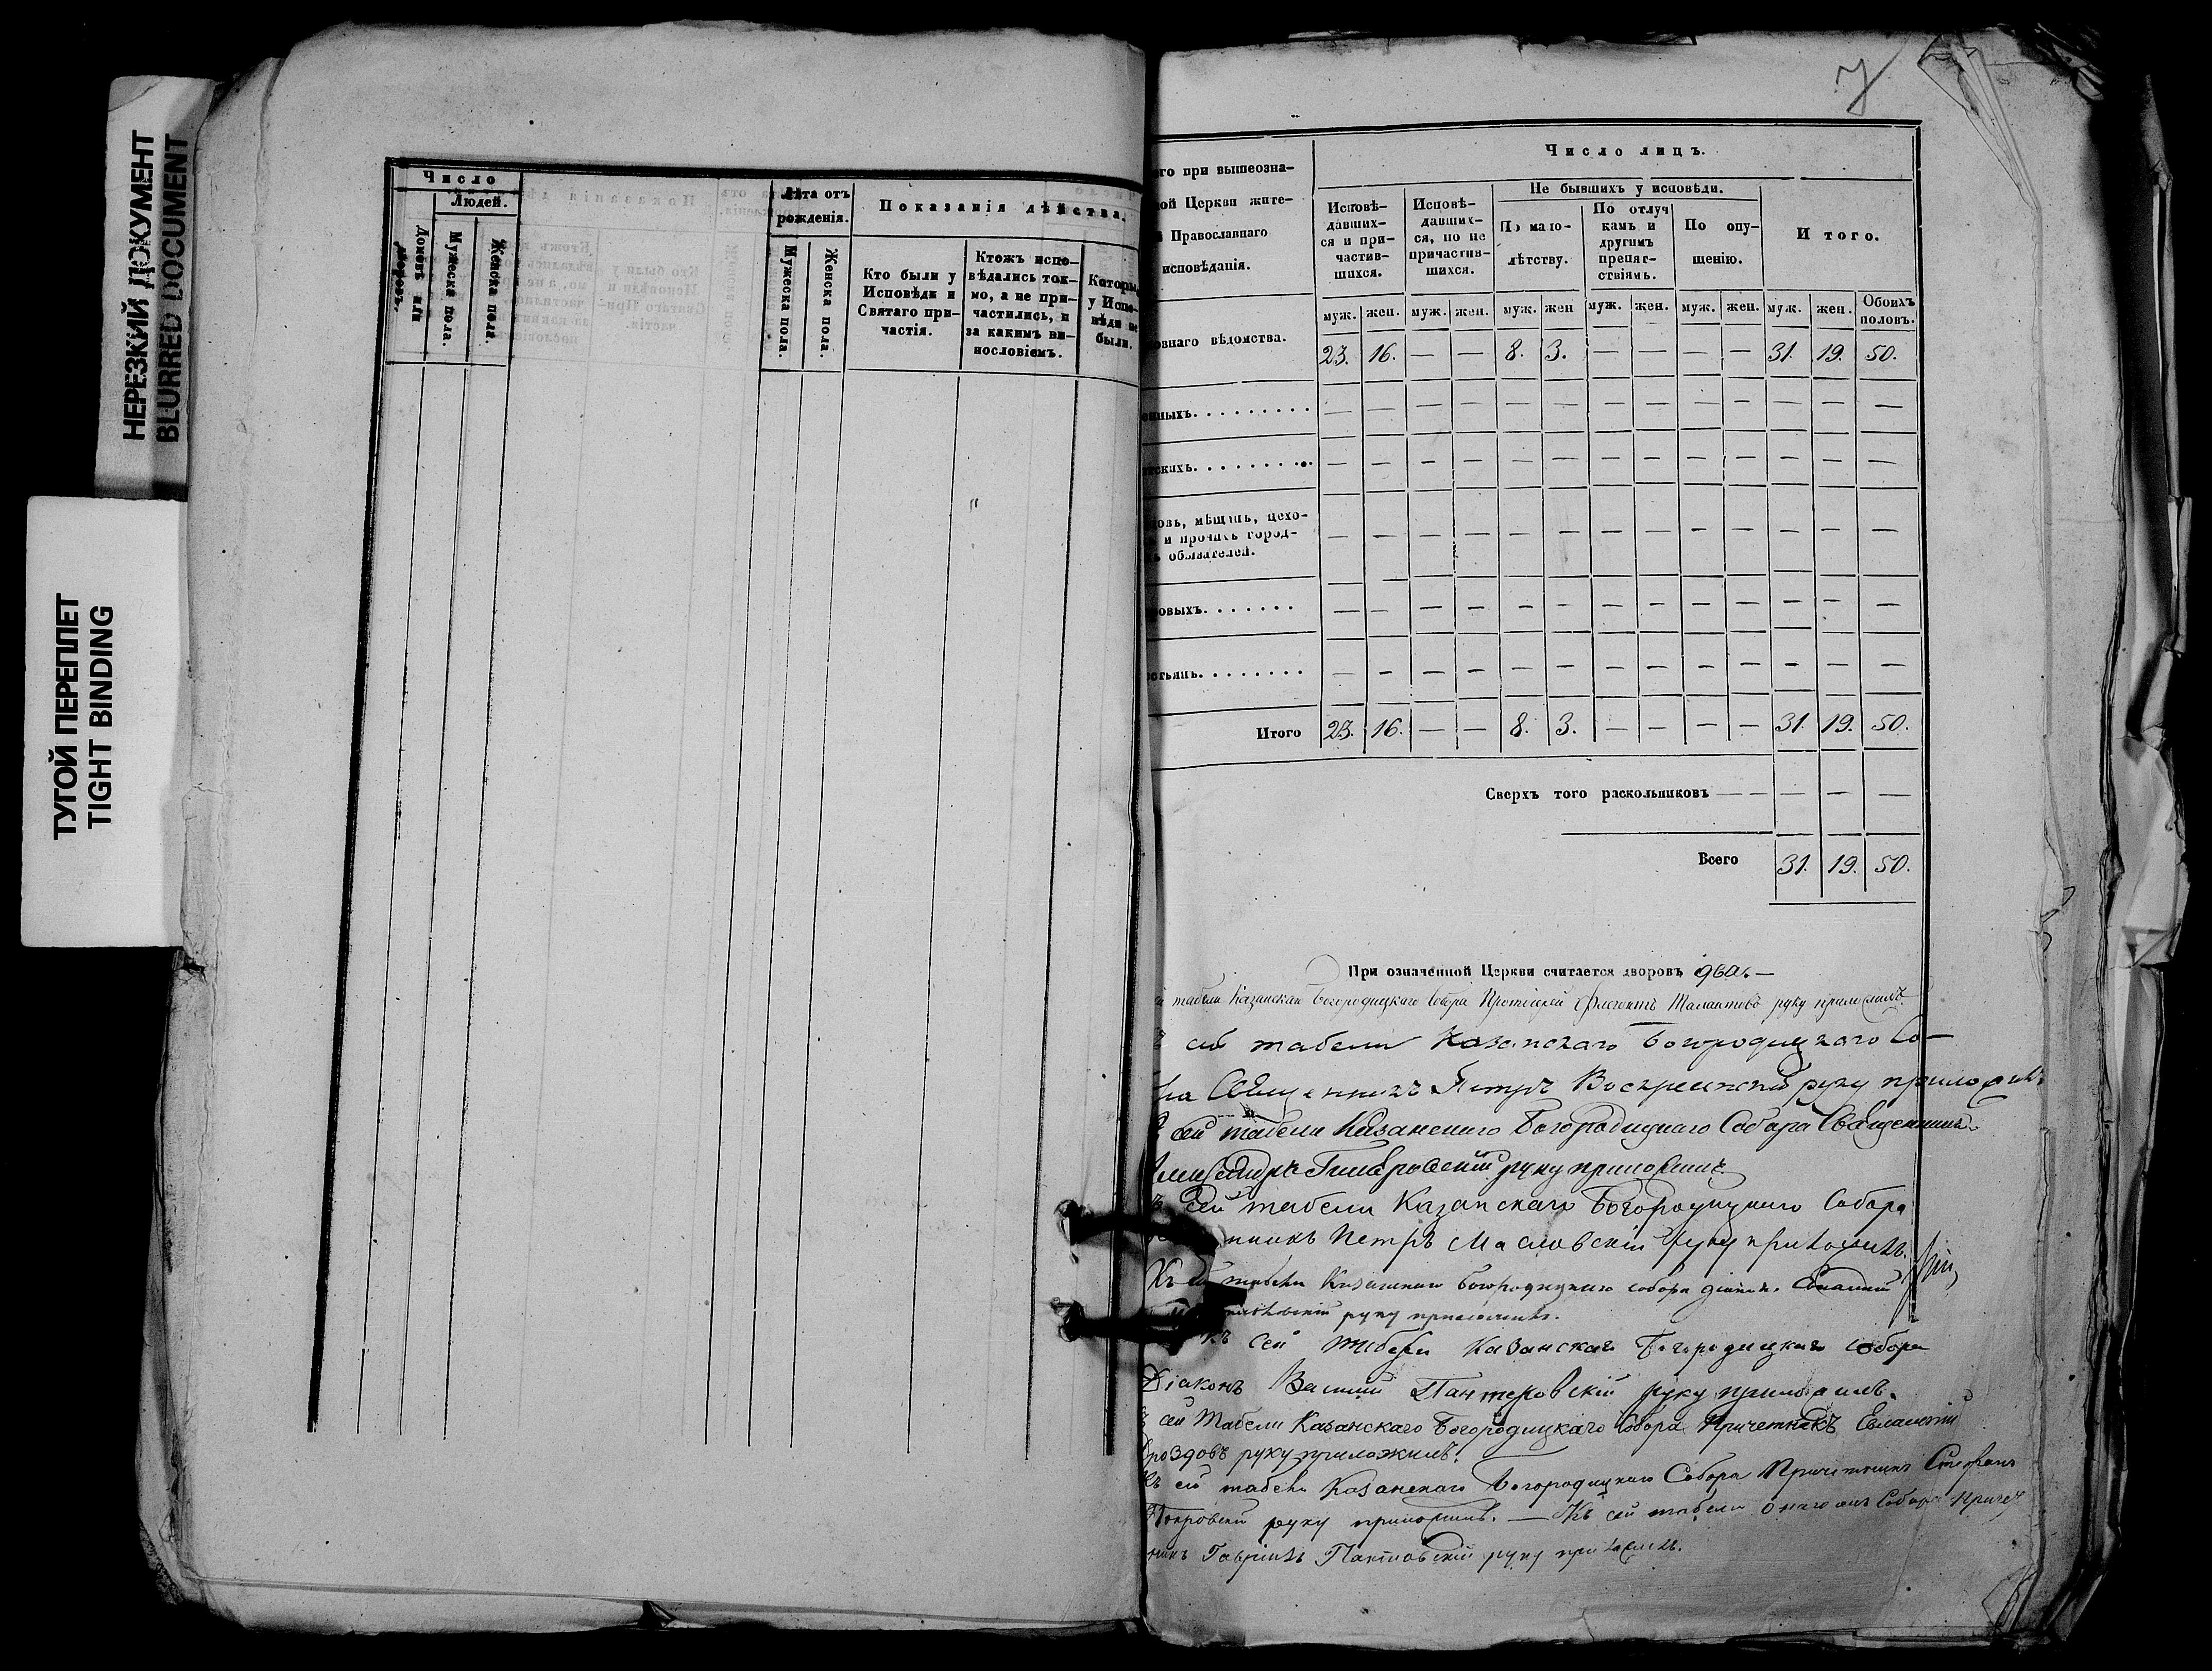 НЕРЕЗКИЙ ДОКУМЕНТ
BLURRED DOCUMENT
ТУГОЙ ПЕРЕПЛЕТ
TIGHT BINDING
Число
Людей.
Домовъ или дворовъ.
Мужеска пола.
Женска пола.
Лѣта отъ
рожденія.
Мужеска пола.
Женска пола.
Показанія дѣйства.
Кто были у
Исповѣди и
Святаго при-
частія.
Ктожъ испо-
вѣдались ток-
мо, а не при-
частились, и
за какимъ ви-
нословіемъ.
Которы
у Испо-
вѣди не
были.
7
го при вышеозна-
ой Церкви жите-
Православнаго
исповѣданія.
Число лицъ.
Исповѣ-
давших-
ся и при-
частив-
шихся.
Исповѣ-
давших-
ся, но не
причастив-
шихся.
Не бывшихъ у исповѣди.
По мало-
лѣтству.
По отлуч
камъ и
другимъ
препят-
ствіямъ.
По опу-
щенію.
Итого.
муж. жен. муж. жен. муж. жен муж. жен. муж. жен. муж. жен. Обоихъ
половъ.
овнаго вѣдомства. 23. 16. — — 8. 3. — — — — 31. 19. 50.
енныхъ. — — — — — — — — — — — — —
тскихъ. — — — — — — — — — — — — —
овъ, мѣщанъ, цехо-
и прочихъ город-
ъ обывателей. — — — — — — — — — — — — —
ровыхъ. — — — — — — — — — — — — —
стьянъ. — — — — — — — — — — — — —
Итого 23. 16. — — 8. 3. — — — — 31. 19. 50.
Сверхъ того раскольниковъ — — — — —
Всего 31. 19. 50.
При означенной Церкви считается дворовъ 960. —
табели Казанскаго Богородицкаго Собора Протоіерей Флегонтъ Талантовъ руку приложилъ.
сей табели Казанскаго Богородицкаго Со-
ра Священникъ Петръ Воскресенскій руку приложилъ
сей табели Казанскаго Богородицкаго Собора Священникъ
руку приложилъ
сей табели Казанскаго Богородицкаго Собора
никъ Петръ Масловскій руку приложилъ.
Къ сей табели Казанскаго Богородицкаго собора
руку приложилъ.
Къ сей табели Казанскаго Богородицкаго собора
Діаконъ Василій Пантеровскій руку приложилъ.
сей табели Казанскаго Богородицкаго Собора Причетникъ Евлампій
Дроздовъ руку приложилъ.
Къ сей табели Казанскаго Богородицкаго Собора Причетникъ Стефанъ
Покровскій руку приложилъ. — Къ сей табели онаго Собора Причет
никъ Гавріилъ руку приложилъ.